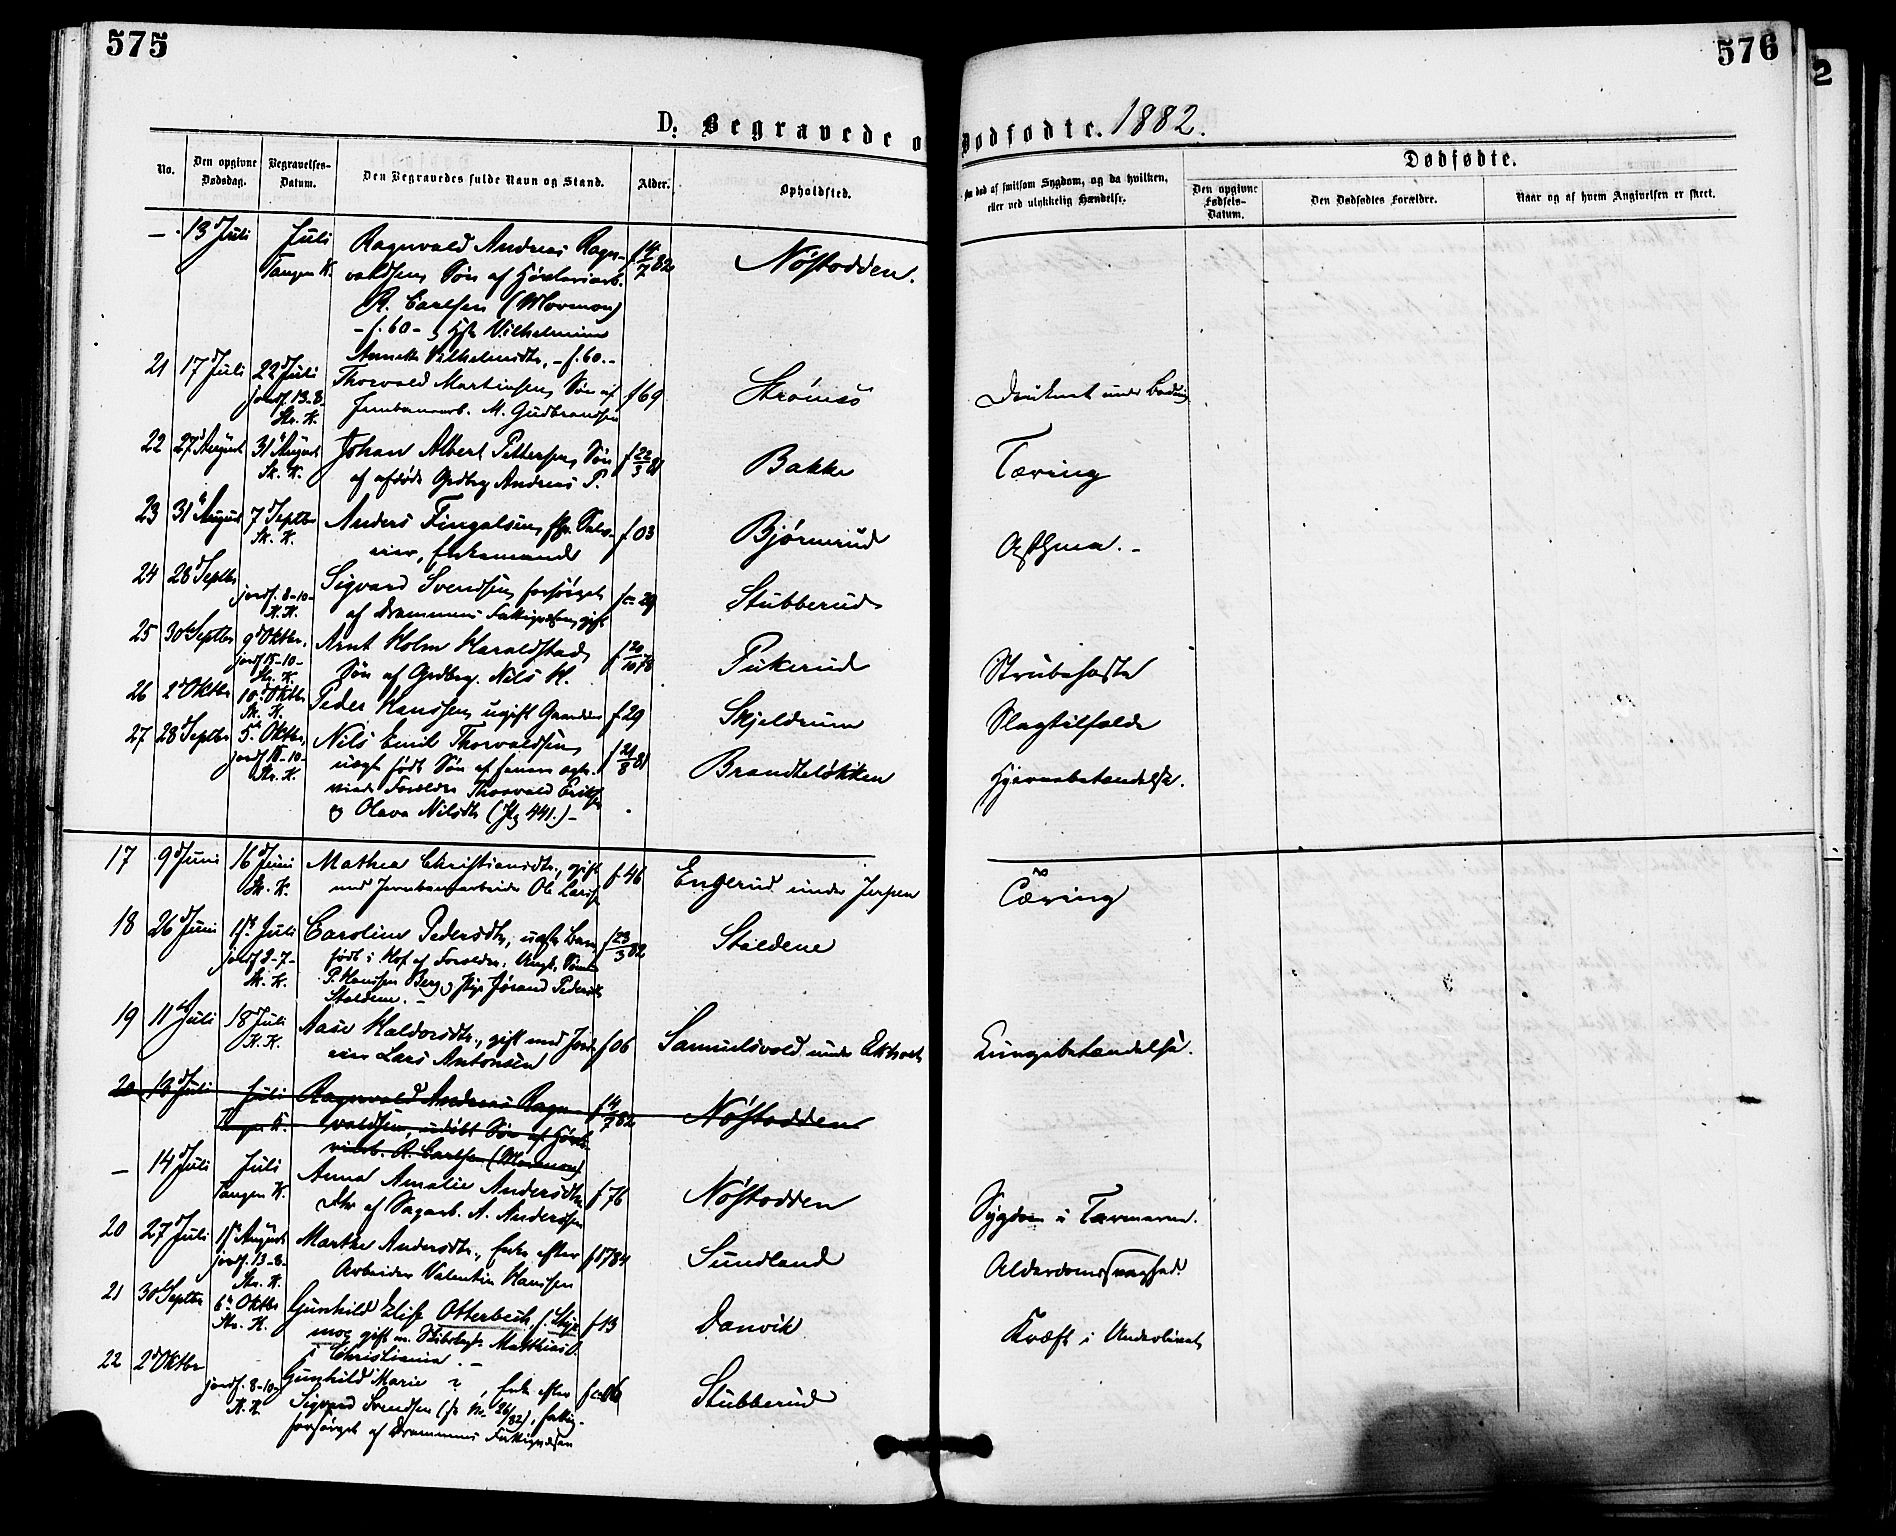 575
576
2
D. Begravede o
Dødfødte. 1882.
No.
Den opgivne Dødsdag.
Begravelses-Datum.
Den Begravedes fulde Navn og Stand.
Alder.
Opholdsted.
død af smitsom Sygdom, og da hvilken, eller ved ulykkelig Hændelse.
Dødfødte.
Den opgivne Fødsels-Datum.
Den Dødfødtes Forældre.
Naar og af hvem Angivelsen er skeet.
— 13 Juli Juli Ragnvald Andreas Ragn- f 14/7 82 Nøstodden.
Tangen K. valdsen, Søn af
R. Carlsen (Mormon)
- f. 60 - og Vilhelmine
Annette Vilhelmsdtr. - f. 60. -
21 17 Juli 22 Juli Thorvald Martinsen, Søn af f 69 Strømsø Druknet under Badning
jordf. 13-8- Str. K. Jernbanearb. M. Gudbrandsen
22 27 August 31 August Johan Albert Pettersen, Søn f 22/3 81 Bakke Tæring
Sk. K. af afdøde Grdbrg Andreas P.
23 31 August 7 Septbr Anders Fingalsen, f 03 Bjørnerud Asthma. -
Sk. K. Enkemand
24 28 Septbr Sigvard Svendsen, forsørget f ca 29 Stubberud
jordf. 8-10- K. K. af Drammens Fattigvæsen, gift
25 30 Septbr 9 Oktbr. Arnt Holm Haraldstad, f 20/10 78 Pukerud Strubehoste
jordf 15-10- Str. K. Søn af Grdbrg. Nils H.
26 2 Oktbr 10 Oktbr Peder Hanssen, ugift f 29 Skjeldrum Slagtilfælde
Sk. K.
27 28 Septbr 5 Oktbr, Nils Emil Thorvaldsen, f 21/8 81 Brandteløkken Hjernebetændelse.
jordf 15-10- Str. K. uægte født Søn af
Forældre Thorvald Eriksen
og Olava Nilsdtr (Pg 441.) -
17 9 Juni 16 Juni Mathea Christiansdtr., gift f 46 Engerud under Jerpen Tæring
Sk. K. med Jernbanearbeider Ole Larsen
18 26 Juni 1 Juli Caroline Pedersdtr, uægte Barn f 23/3 82 Staldene
jordf 2-7- Sk. K. født i Hof af Forældre, Ungk.
P. Hanssen Berg og Pige Jørand Pedersdtr
Staldene. -
19 11 Juli 18 Juli Aase Haldorsdtr., gift med f 06 Samuelsvold under Ekholt Lungebetændelse.
K. K. Lars Antonsen
20 13 Juli Juli Ragnvald Andreas Ragn- f 4/7 82 Nøstodden
Tangen K. valdsen, udøbt Søn af
R. Carlsen (Mormon)
— 14 Juli Juli Anna Amalie Andersdtr f 76 Nøstodden Sygdom i Tarmerne.
Tangen K. Dtr af Sagarb. A. Anderssen
20 27 Juli 1 August Marthe Andersdtr., Enke efter f 1784 Sundland Alderdomssvaghed.
jordf. 13-8- Str. K. Arbeider Valentin Hanssen
21 30 Septbr 6 Oktbr Gunhild Elise Otterbech, f 13 Danvik Kræft i Underlivet
Str. K. gift m. Matthias O.
i Christiania. -
22 2 Oktbr Gunhild Marie ? Enke efter f ca 06 Stubberud
jordf. 8-10- K. K. Sigvard Svendsen
forsørget af Drammens Fattigvæsen